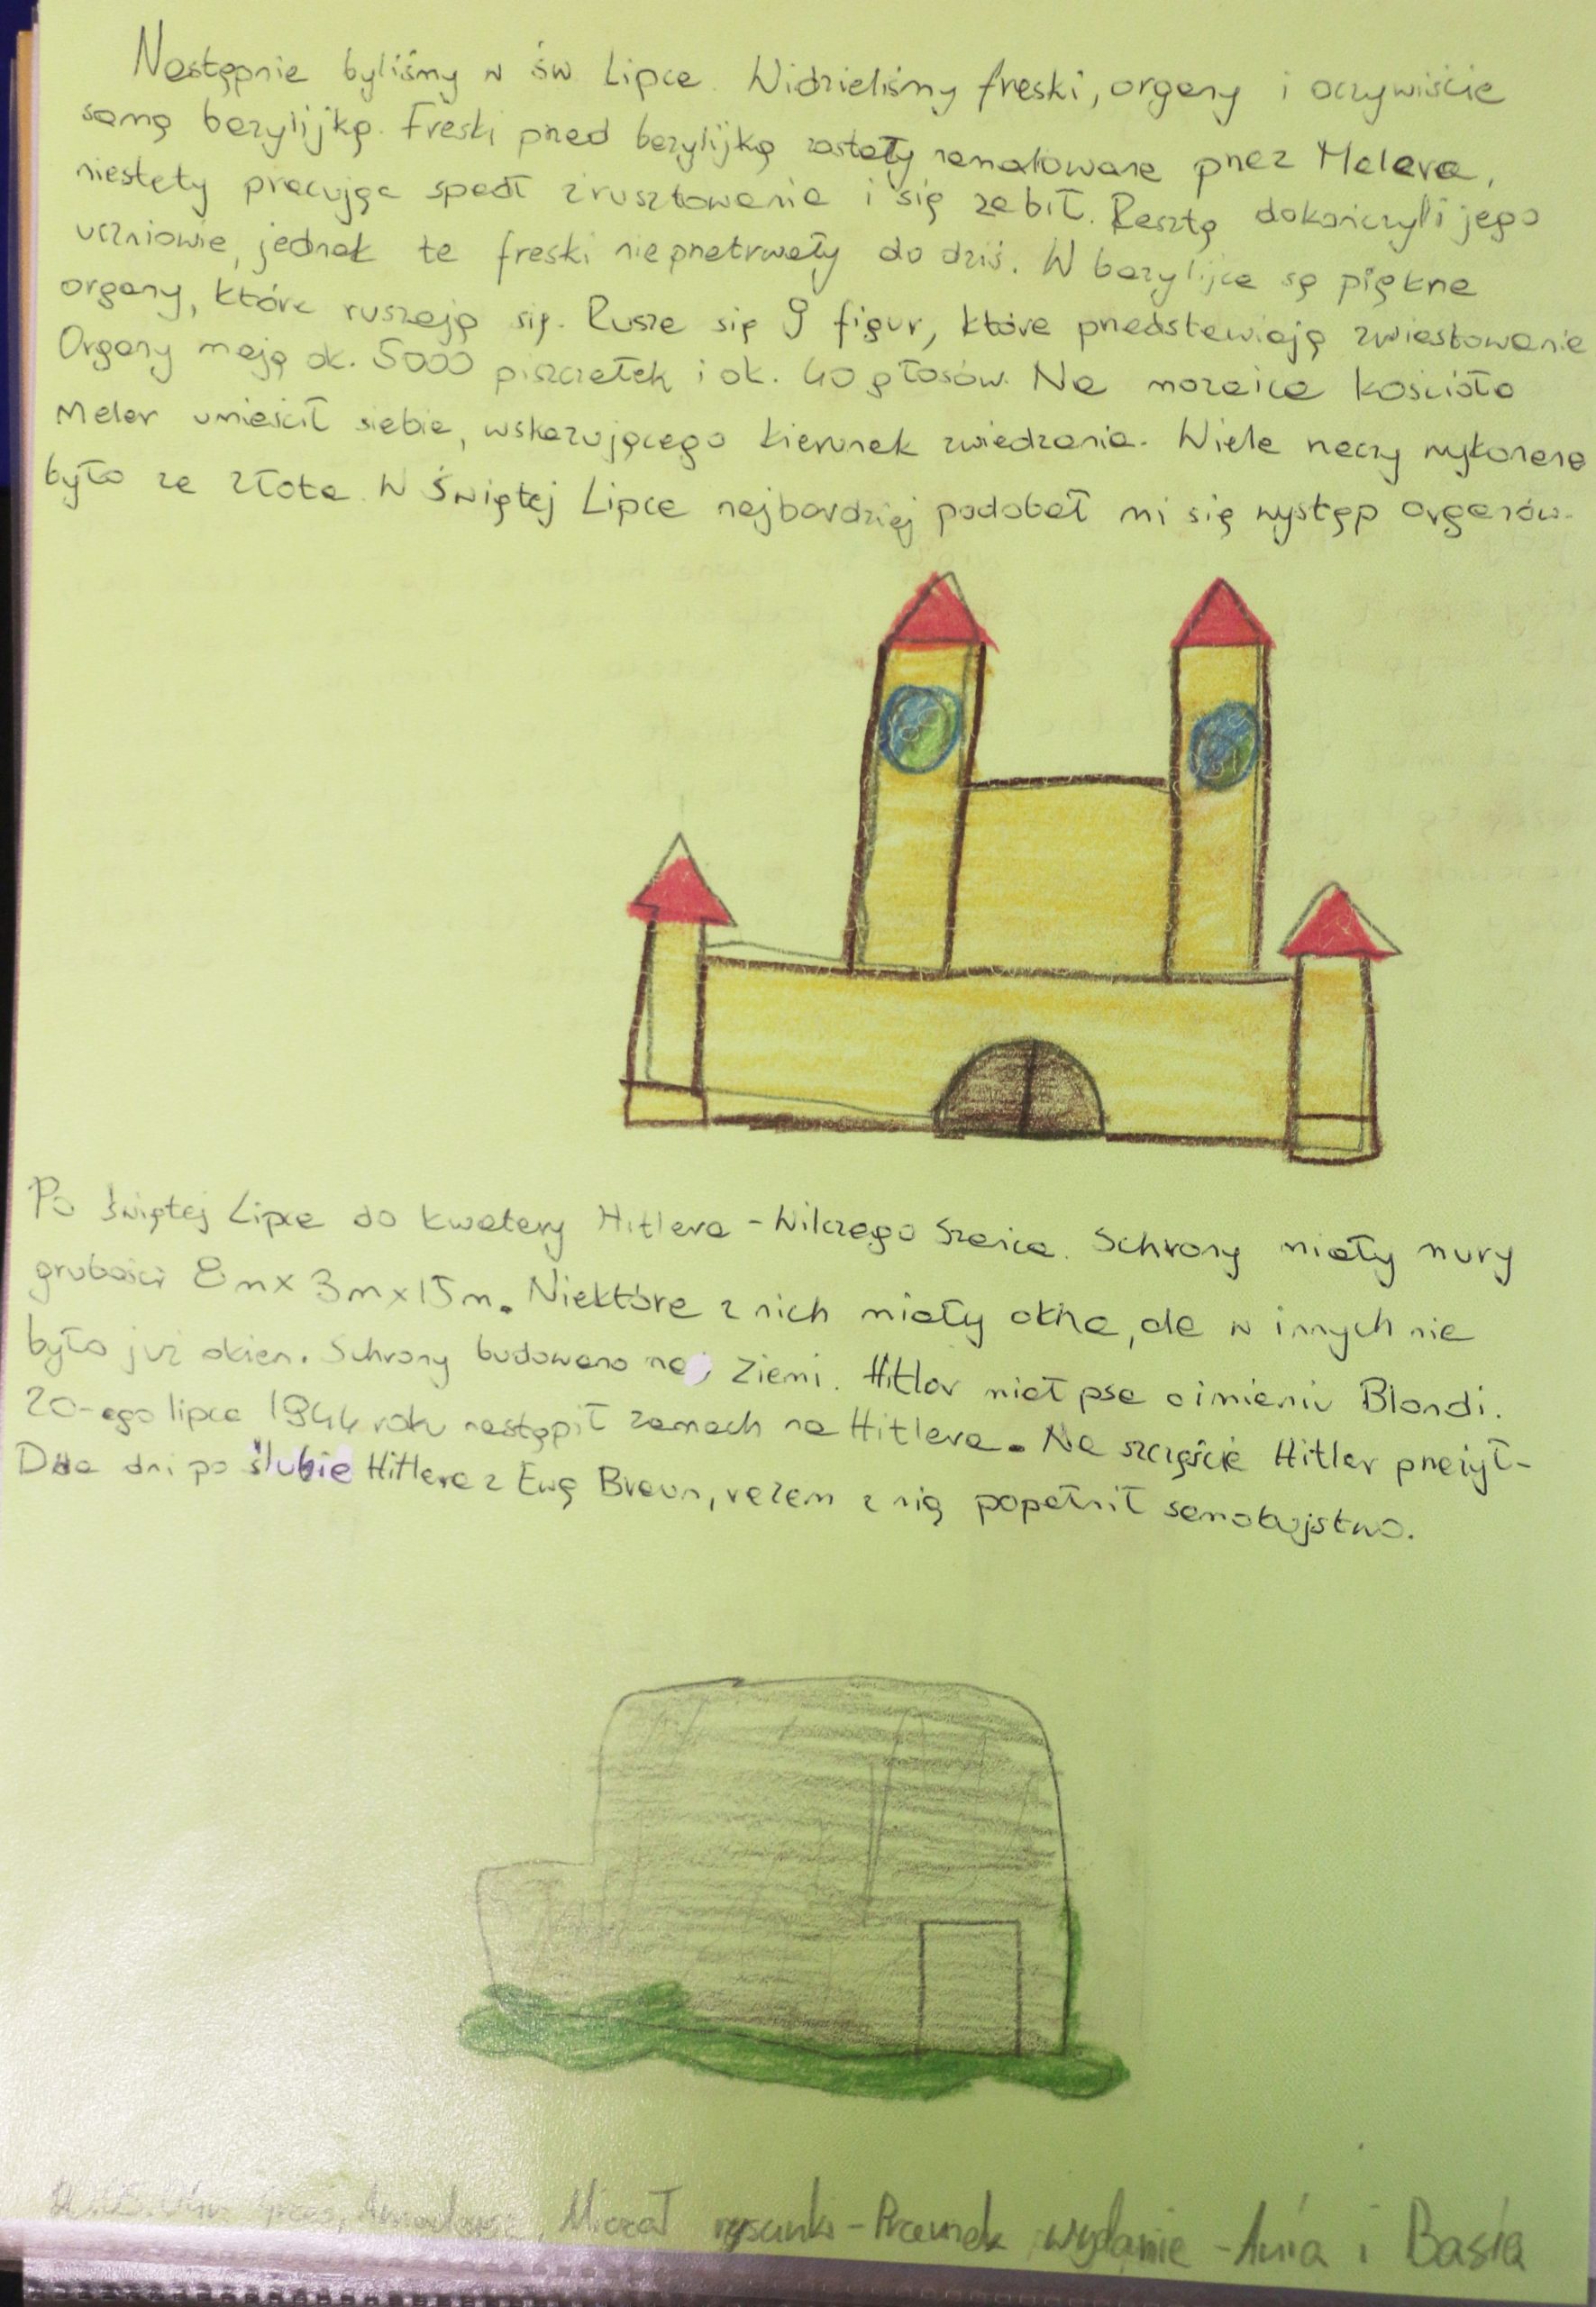 Następnie byliśmy w św Lipce. Widzieliśmy freski, organy i oczywiście
samą bazylijkę. Freski przed bazylijką zostały namalowane przez Melera,
niestety pracując spadł z rusztowania i się zabił. Resztę dokończyli jego
uczniowie, jednak te freski nie przetrwały do dziś. W bazylijce są piękne
organy, które ruszają się. Rusza się 9 figur, które przedstawiają zwiastowanie
Organy mają ok. 5000 piszczałek i ok. 40 głosów. Na mozaice kościoła
Meler umieścił siebie, wskazującego kierunek zwiedzania. Wiele rzeczy wykonane
było ze złota. W Świętej Lipce najbardziej podobał mi się występ organów.
Po świętej Lipce do kwatery Hitlera - Wilczego Szańca. Schrony miały mury
grubości 8m x 3m x 15m. Niektóre z nich miały okna, ale w innych nie
było już okien. Schrony budowano na ziemi. Hitler miał psa o imieniu Blondi.
20-ego lipca 1944 roku nastąpił zamach na Hitlera. Na szczęście Hitler przeżył.
Dwa dni po ślubie Hitlera z Ewą Braun, razem z nią popełnił samobójstwo.
Michał rysunki - Przemek wydanie - Ania i Basia